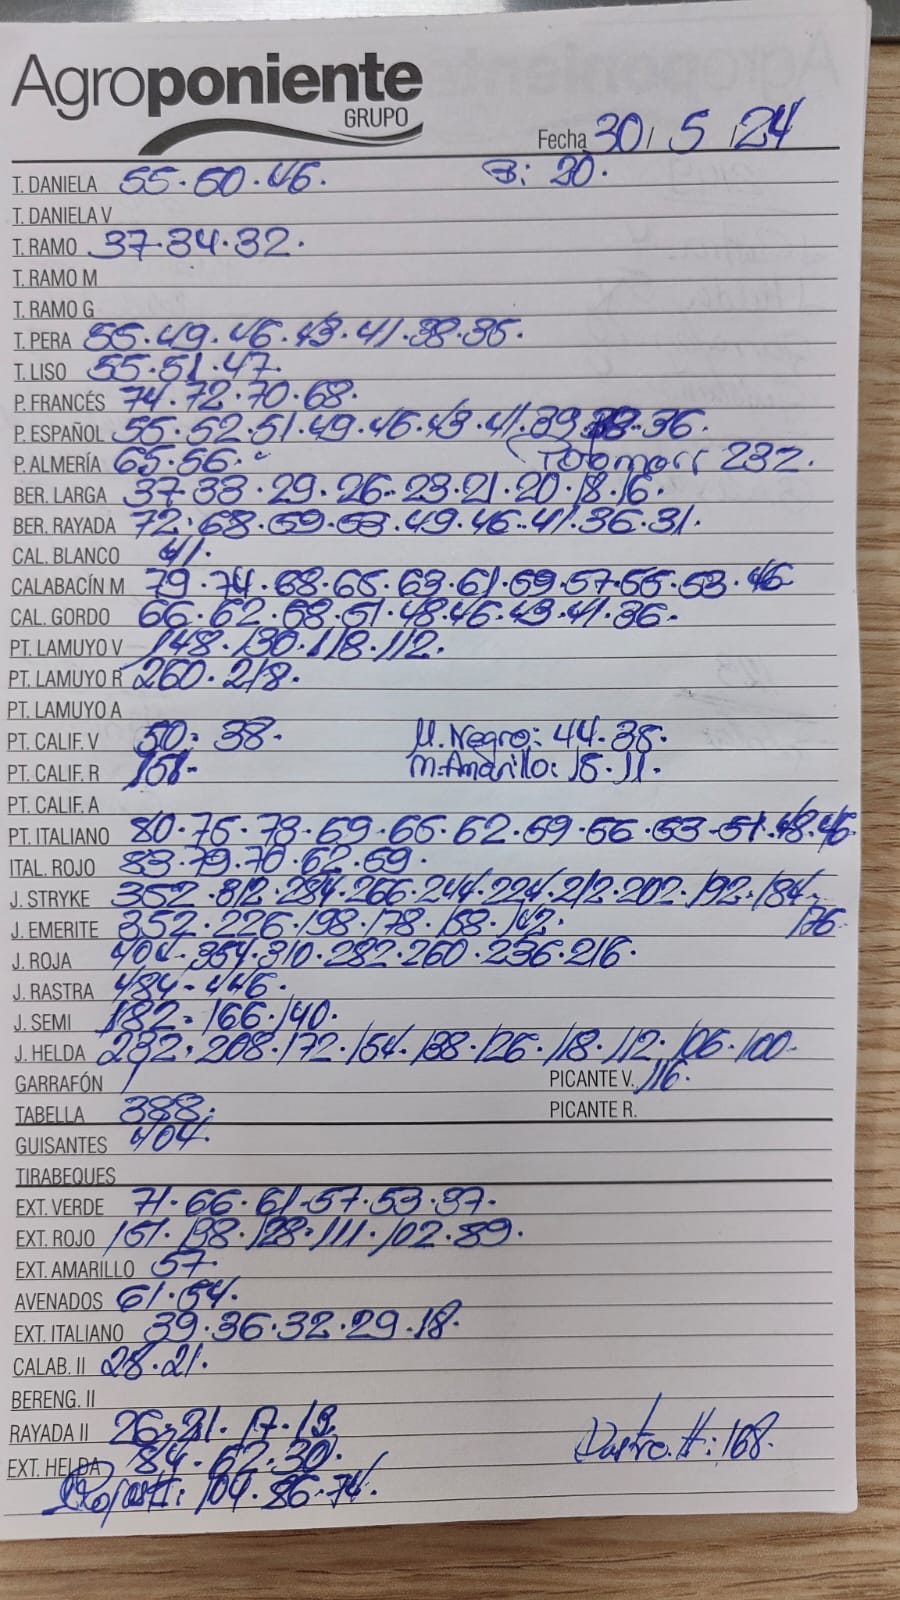 Agroponiente
GRUPO
Fecha 30 / 5 / 24
T. DANIELA 55·50·46. B: 20.
T. DANIELA V
T. RAMO 37·34·32.
T. RAMO M
T. RAMO G
T. PERA 55·49·46·43·41·38·35.
T. LISO 55·51·47.
P. FRANCÉS 74·72·70·68.
P. ESPAÑOL 55·52·51·49·46·43·41·39·38·36.
P. ALMERÍA 65·56. 232.
BER. LARGA 37·33·29·26·23·21·20·18·16.
BER. RAYADA 72·68·59·53·49·46·41·36·31.
CAL. BLANCO 41.
CALABACÍN M 79·74·68·65·63·61·59·57·55·53·46
CAL. GORDO 66·62·58·51·48·46·43·41·36.
PT. LAMUYO V 148·130·118·112.
PT. LAMUYO R 260·218.
PT. LAMUYO A
PT. CALIF. V 50·38. M. Negro: 44·35.
PT. CALIF. R 151. M. Amarillo: 15·11.
PT. CALIF. A
PT. ITALIANO 80·75·73·69·65·62·59·56·53·51·48·46
ITAL. ROJO 83·79·70·62·59.
J. STRYKE 352·312·284·266·244·224·212·202·192·184·
J. EMERITE 352·226·198·178·158·142. 176
J. ROJA 404·354·310·282·260·236·216.
J. RASTRA 484·446.
J. SEMI 182·166·140.
J. HELDA 232·208·172·154·138·126·118·112·106·100.
GARRAFÓN PICANTE V. 116.
TABELLA 388. PICANTE R.
GUISANTES 404.
TIRABEQUES
EXT. VERDE 71·66·61·57·53·37.
EXT. ROJO 151·138·128·111·102·89.
EXT. AMARILLO 57.
AVENADOS 61·54.
EXT. ITALIANO 39·36·32·29·18.
CALAB. II 28·21.
BERENG. II
RAYADA II 26·21·17·13.
EXT. HELDA 84·62·30. 168.
Roja II: 104·86·74.